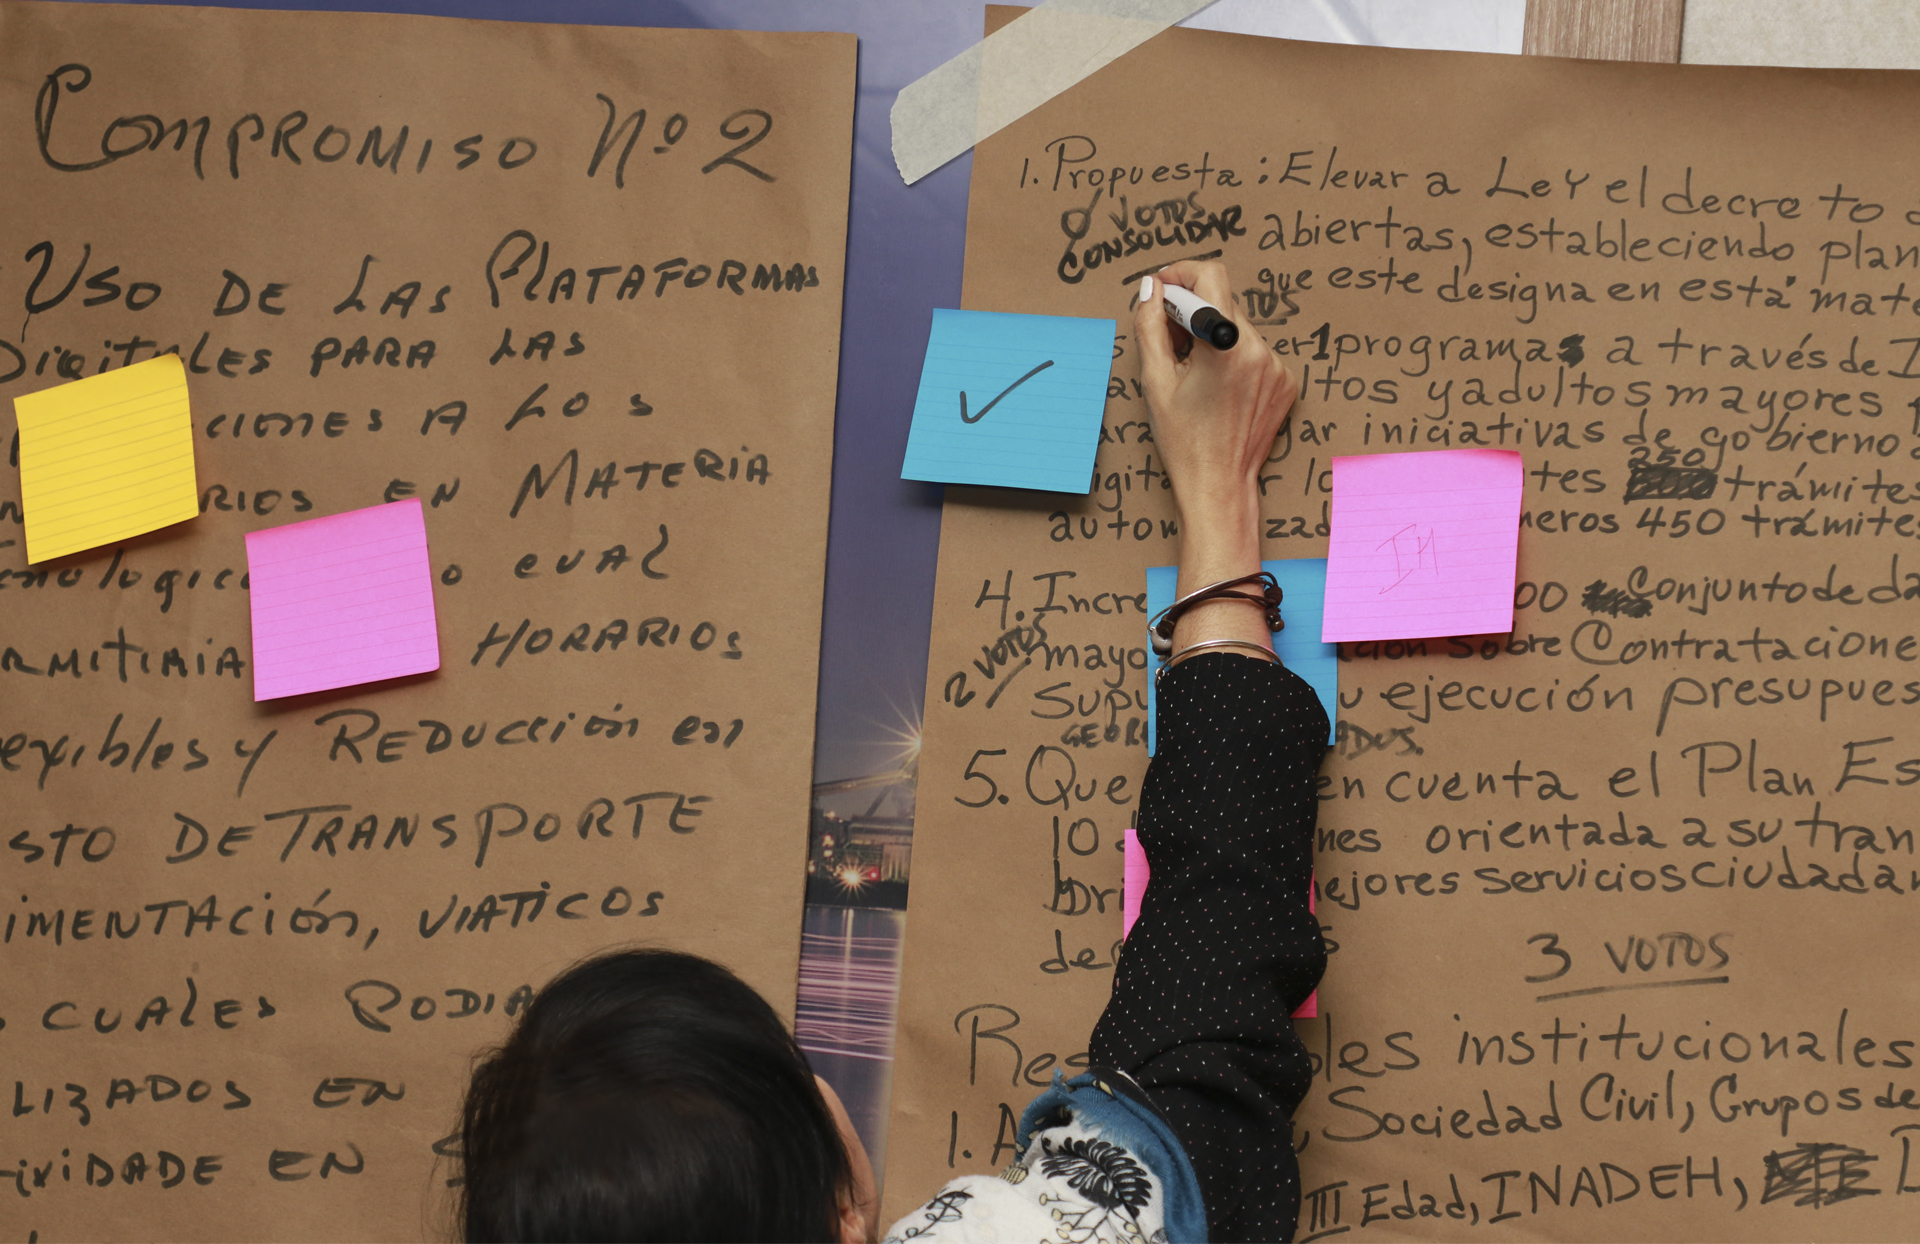 Compromiso Nº 2
Uso DE LAS PLATAFORMAS
Digitales PARA LAS
ciones A Los
RIOS EN MATERIA
cnologico o cual
RMITIRIA HORARIOS
exibles y REDUCCión en
STO DE TRANSPORTE
IMENTACión, VIATICOS
CUALES PODIA
LIZADOS EN
IXIDADE EN
1. Propuesta : Elevar a Ley el decreto
0 VOTOS
CONSOLIDAR
abiertas, estableciendo plan
que este designa en esta mate
TOS
er 1 programas a través de I
ltos y adultos mayores p
ar iniciativas de gobierno
250
igita r lo tes trámites
autom zad neros 450 trámites
IH
4. Incre 00 Conjunto de da
2 VOTOS
mayo ción Sobre Contratacione
Supu u ejecución presupues
GEOR ADOS.
5. Que en cuenta el Plan Es
10 nes orientada a su tran
bri ejores servicios ciudadan
de s
3 VOTOS
Res les institucionales
1. A , Sociedad Civil, Grupos de
III Edad, INADEH,